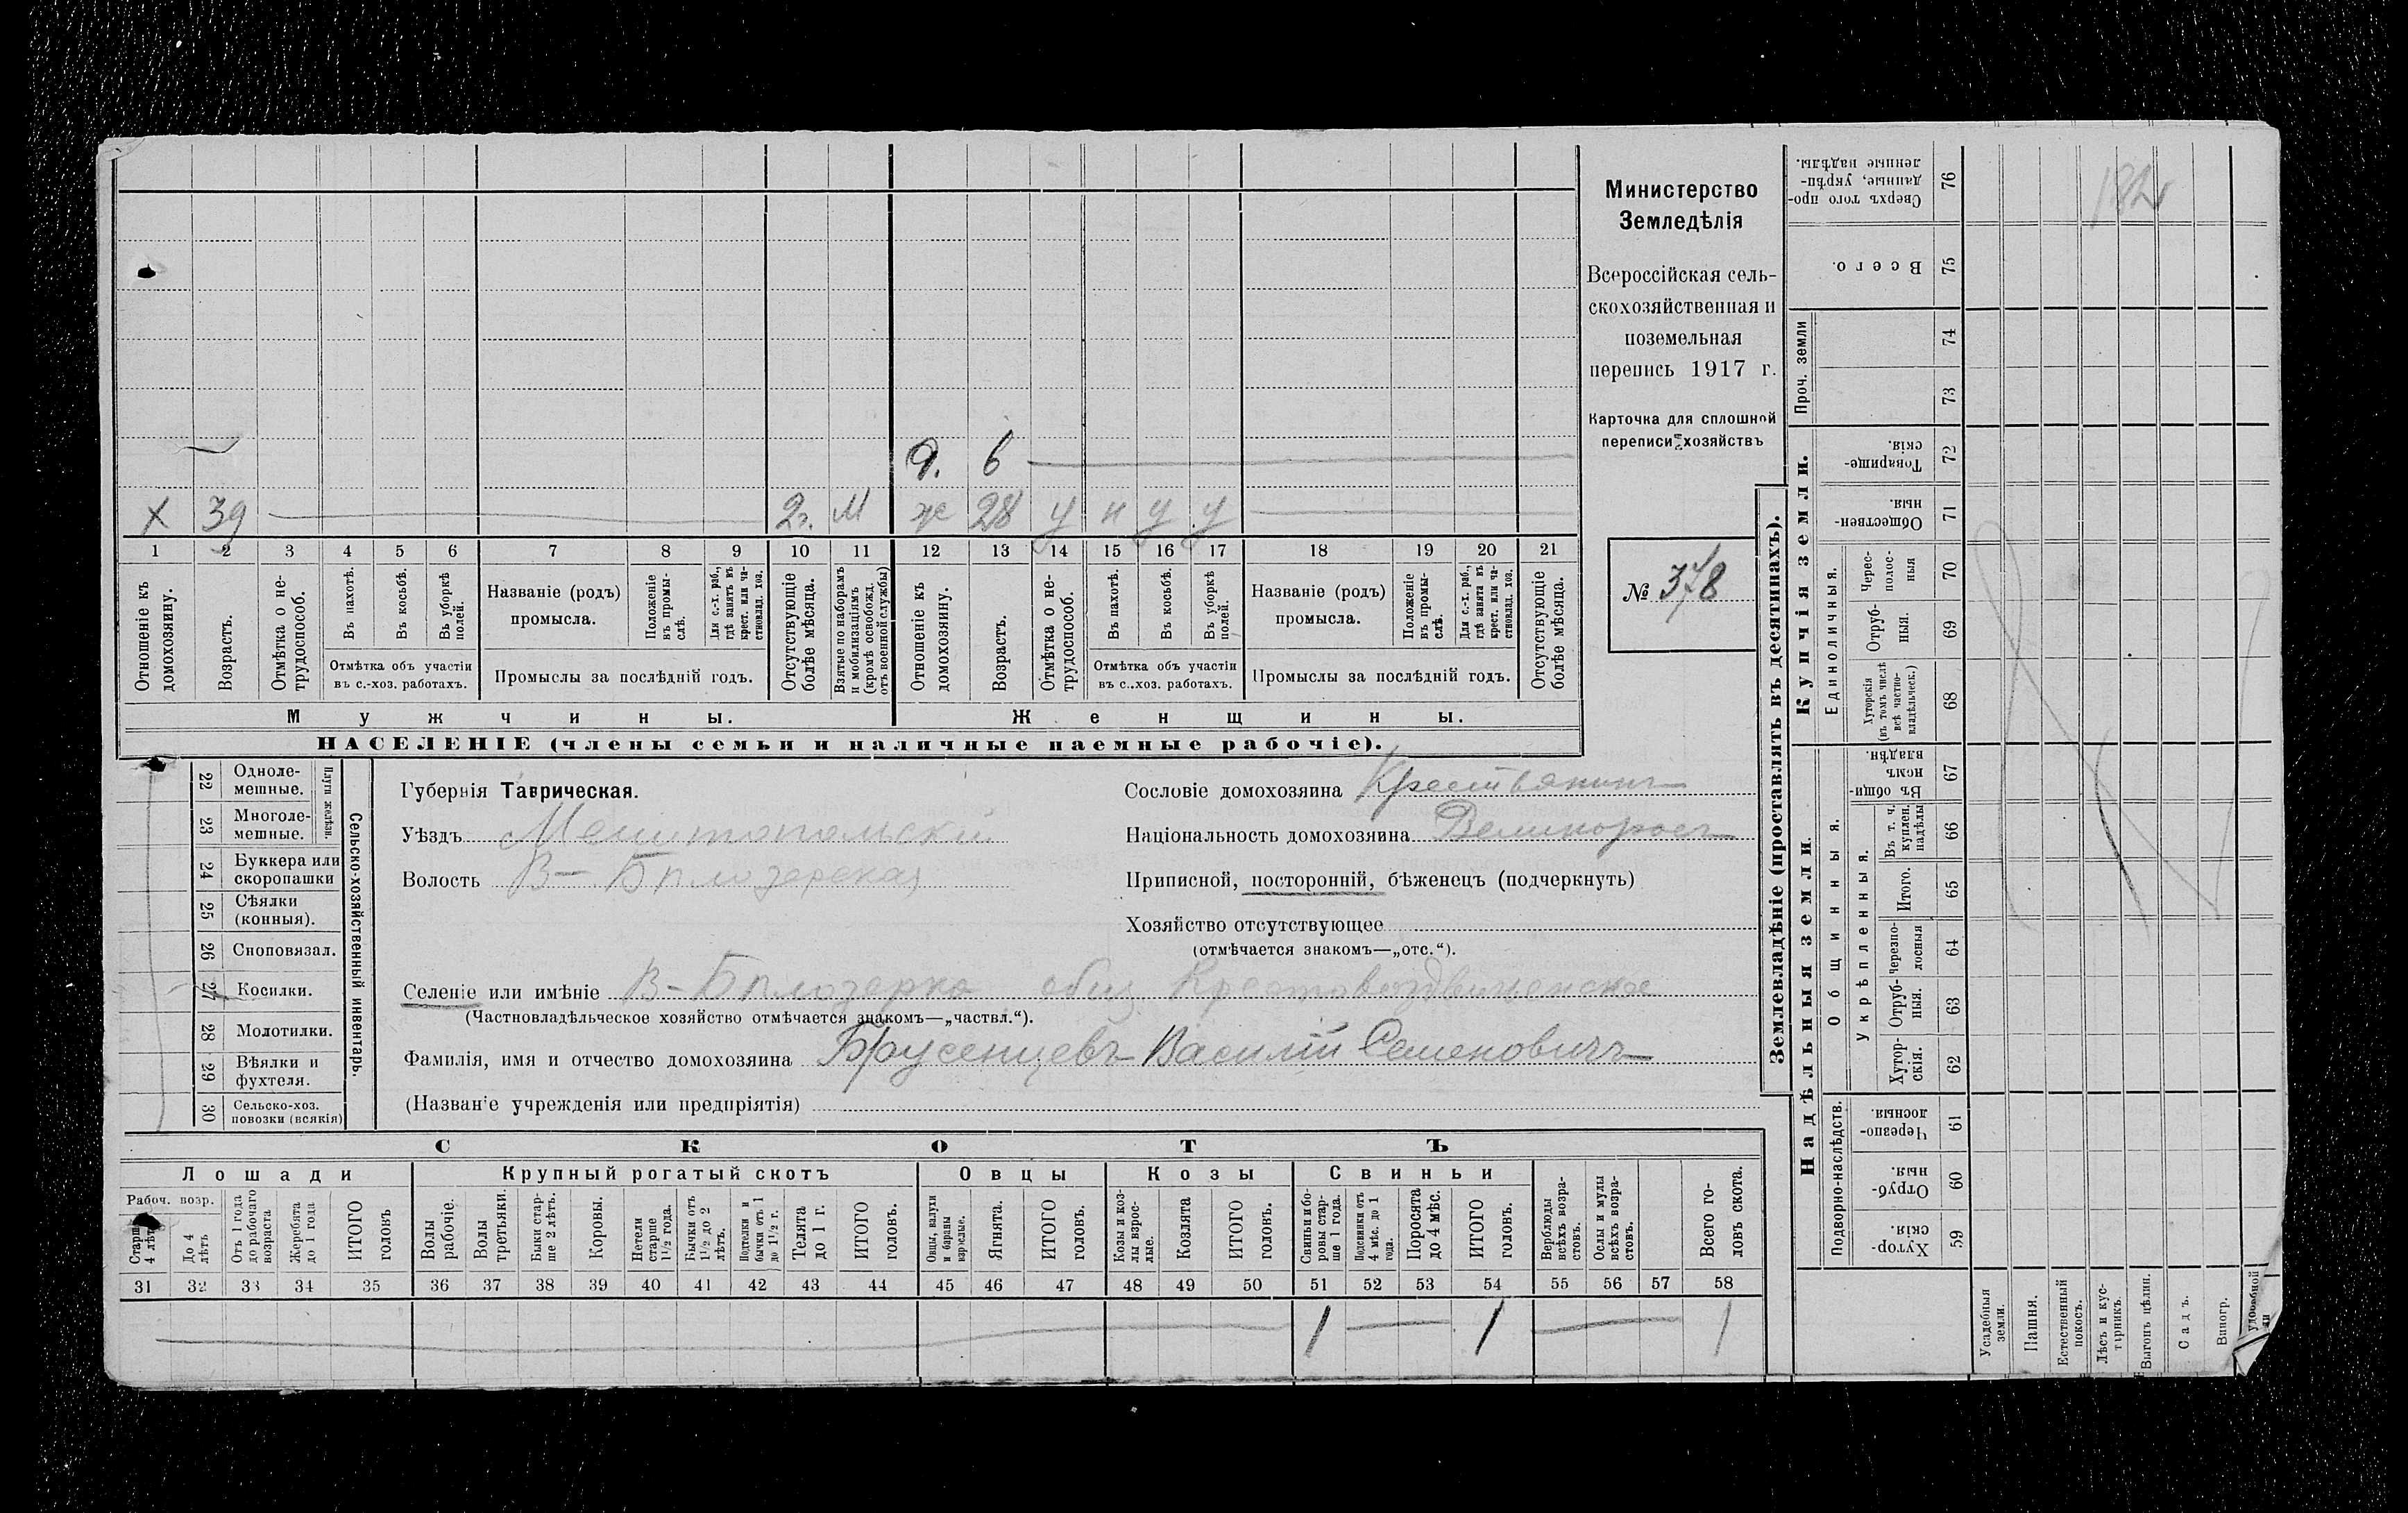 Х 39 2г. М
Д. 6
ж 28 у н у у
1 2 3 4 5 6 7 8 9 10 11 12 13 14 15 16 17 18 19 20 21
Отношеніе къ домохозяину.
Возрастъ.
Отмѣтка о не-трудоспособ.
Въ пахотѣ.
Въ косьбѣ.
Въ уборкѣ полей.
Отмѣтка объ участіи
въ с.-хоз. работахъ.
Названіе (родъ)
промысла.
Положеніе въ промы-слѣ.
Для с.-х. раб., гдѣ занятъ въ крест. или ча-стновлад. хоз.
Промыслы за послѣдній годъ.
Отсутствующіе болѣе мѣсяца.
Взятые по наборамъ и мобилизаціямъ (кромѣ освобожд. отъ военной службы)
Отношеніе къ домохозяину.
Возрастъ.
Отмѣтка о не-трудоспособ.
Въ пахотѣ.
Въ косьбѣ.
Въ уборкѣ полей.
Отмѣтка объ участіи
въ с.-хоз. работахъ.
Названіе (родъ)
промысла.
Положеніе въ промы-слѣ.
Для с.-х. раб., гдѣ занята въ крест. или ча-стновлад. хоз.
Промыслы за послѣдній годъ.
Отсутствующіе болѣе мѣсяца.
Мужчины.
Женщины.
НАСЕЛЕНІЕ (члены семьи и наличные наемные рабочіе).
Министерство
Земледѣлія
Всероссійская сель-
скохозяйственная и
поземельная
перепись 1917 г.
Карточка для сплошной
переписи хозяйствъ
№ 378
22 Одноле-мешные.
23 Многоле-мешные.
Плуги желѣзн.
24 Буккера или скоропашки
25 Сѣялки (конныя).
26 Сноповязал.
27 Косилки.
28 Молотилки.
29 Вѣялки и фухтеля.
30 Сельско-хоз. повозки (всякія)
Сельско-хозяйственный инвентарь.
Губернія Таврическая.
Уѣздъ Мелитопольскій
Волость В-Бѣлозерская
Сословіе домохозяина Крестьянинъ
Національность домохозяина Великороссъ
Приписной, посторонній, бѣженецъ (подчеркнуть)
Хозяйство отсутствующее
(отмѣчается знакомъ—„отс.“).
Селеніе или имѣніе В-Бѣлозерка общ. Крестовоздвиженское
(Частновладѣльческое хозяйство отмѣчается знакомъ—„частвл.“).
Фамилія, имя и отчество домохозяина Брусенцевъ Василій Семеновичъ
(Названіе учрежденія или предпріятія)
СКОТЪ
Лошади
Крупный рогатый скотъ
Овцы
Козы
Свиньи
Рабоч. возр.
Старше 4 лѣтъ
До 4 лѣтъ
Отъ 1 года до рабочаго возраста
Жеребята до 1 года
ИТОГО головъ
Волы рабочіе.
Волы третьяки.
Быки стар-ше 2 лѣтъ.
Коровы.
Нетели старше 1½ года.
Бычки отъ 1½ до 2 лѣтъ.
Подтелки и бычки отъ 1 до 1½ г.
Телята до 1 г.
ИТОГО головъ.
Овцы, валухи и бараны взрослые.
Ягнята.
ИТОГО головъ.
Козы и коз-лы взрос-лые.
Козлята
ИТОГО головъ.
Свиньи и бо-ровы стар-ше 1 года.
Подсвинки отъ 4 мѣс. до 1 года.
Поросята до 4 мѣс.
ИТОГО головъ.
Верблюды всѣхъ возра-стовъ.
Ослы и мулы всѣхъ возра-стовъ.
Всего го-ловъ скота.
31 32 33 34 35 36 37 38 39 40 41 42 43 44 45 46 47 48 49 50 51 52 53 54 55 56 57 58
1 1 1
Землевладѣніе (проставлять въ десятинахъ).
Надѣльныя земли.
Купчія земли.
Проч. земли
Подворно-наслѣдств.
Общинныя.
Укрѣпленныя.
Единоличныя.
Хутор-скія. 59
Отруб-ныя. 60
Черезпо-лосныя. 61
Хутор-скія. 62
Отруб-ныя. 63
Черезпо-лосныя 64
Итого. 65
Въ т. ч. куплен. надѣлы 66
Въ общи-номъ владѣн. 67
Хуторскія (въ томъ числѣ всѣ частно-владѣльческ.) 68
Отруб-ныя. 69
Черес-полос-ныя 70
Обществен-ныя. 71
Товарище-скія. 72
73
74
Всего. 75
Сверхъ того про-данные, укрѣп-ленные надѣлы. 76
182
Усадебныя земли.
Пашня.
Естественный покосъ.
Лѣсъ и кус-тарникъ.
Выгонъ цѣлин.
Садъ.
Виногр.